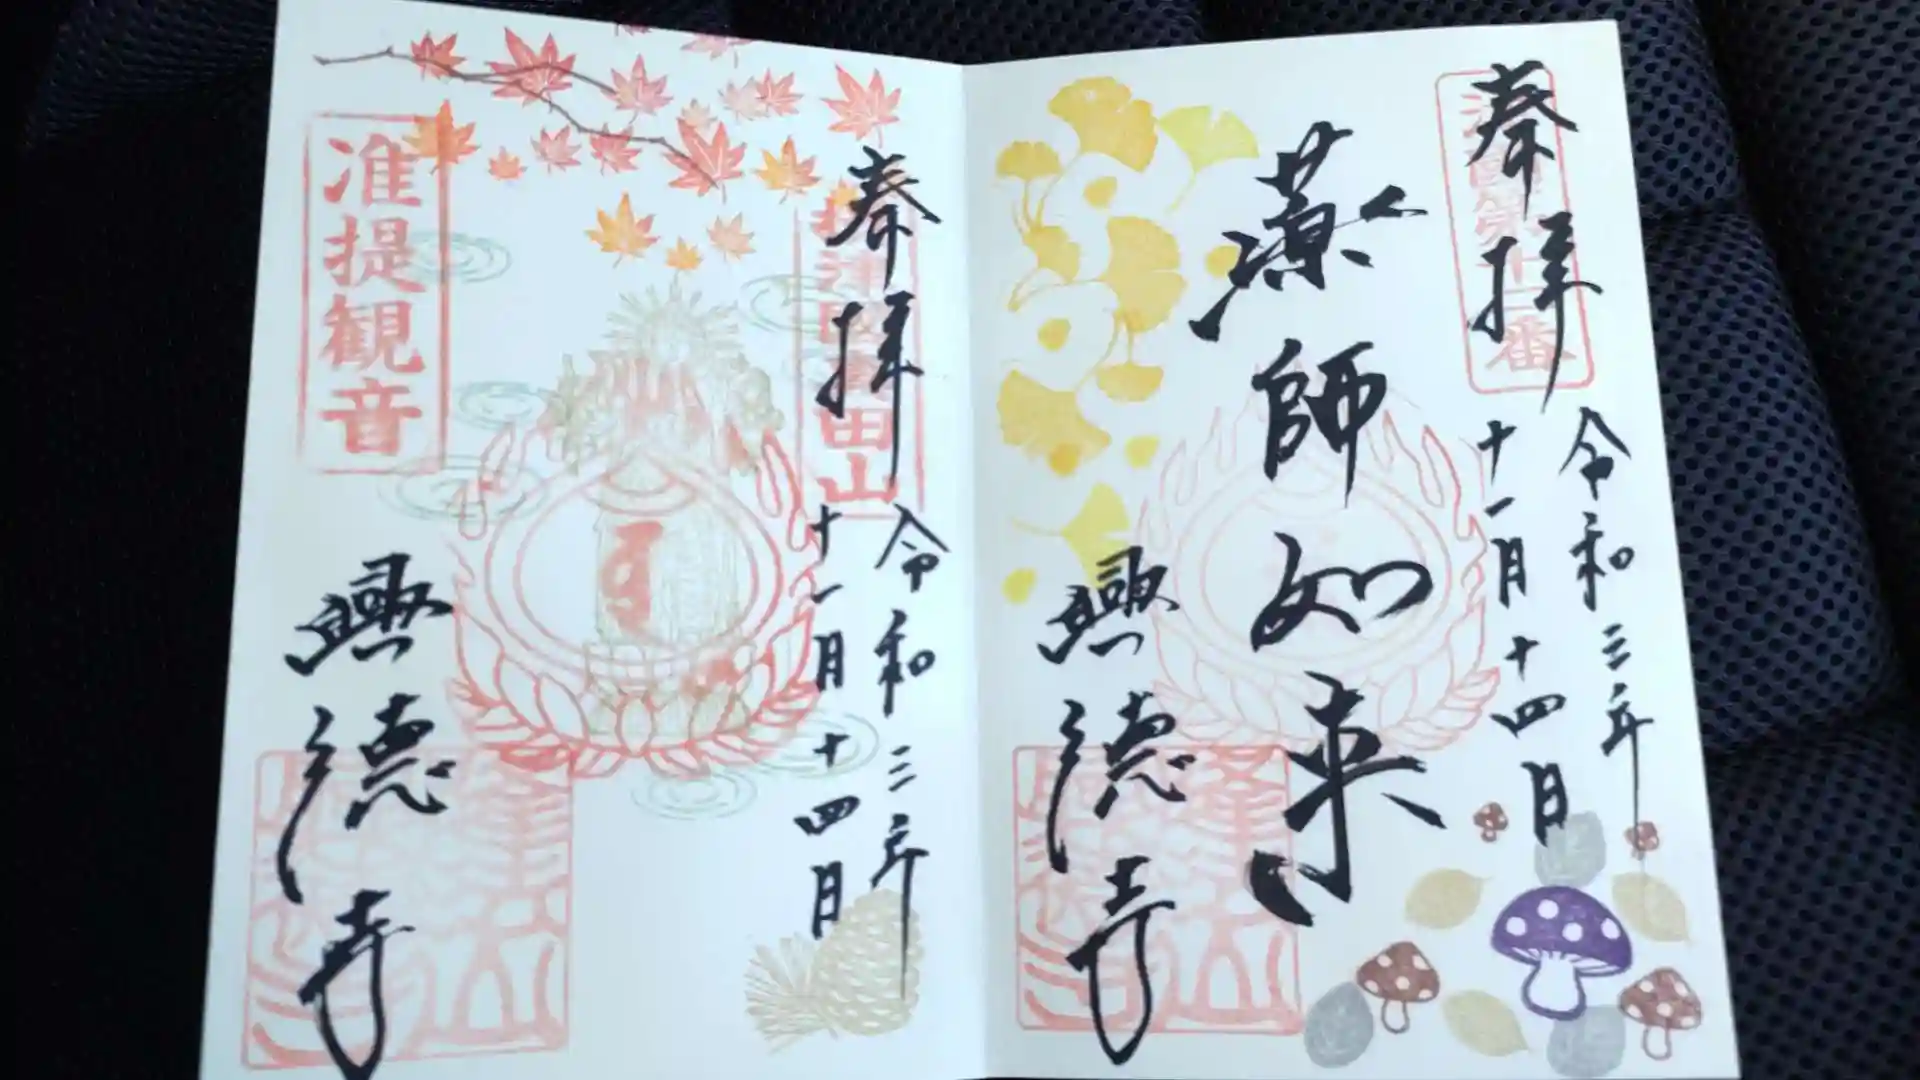 奉拜
令和三年
十一月十四日
薬師如来
興徳寺
奉拜
令和三年
十一月十四日
准提観音
興徳寺